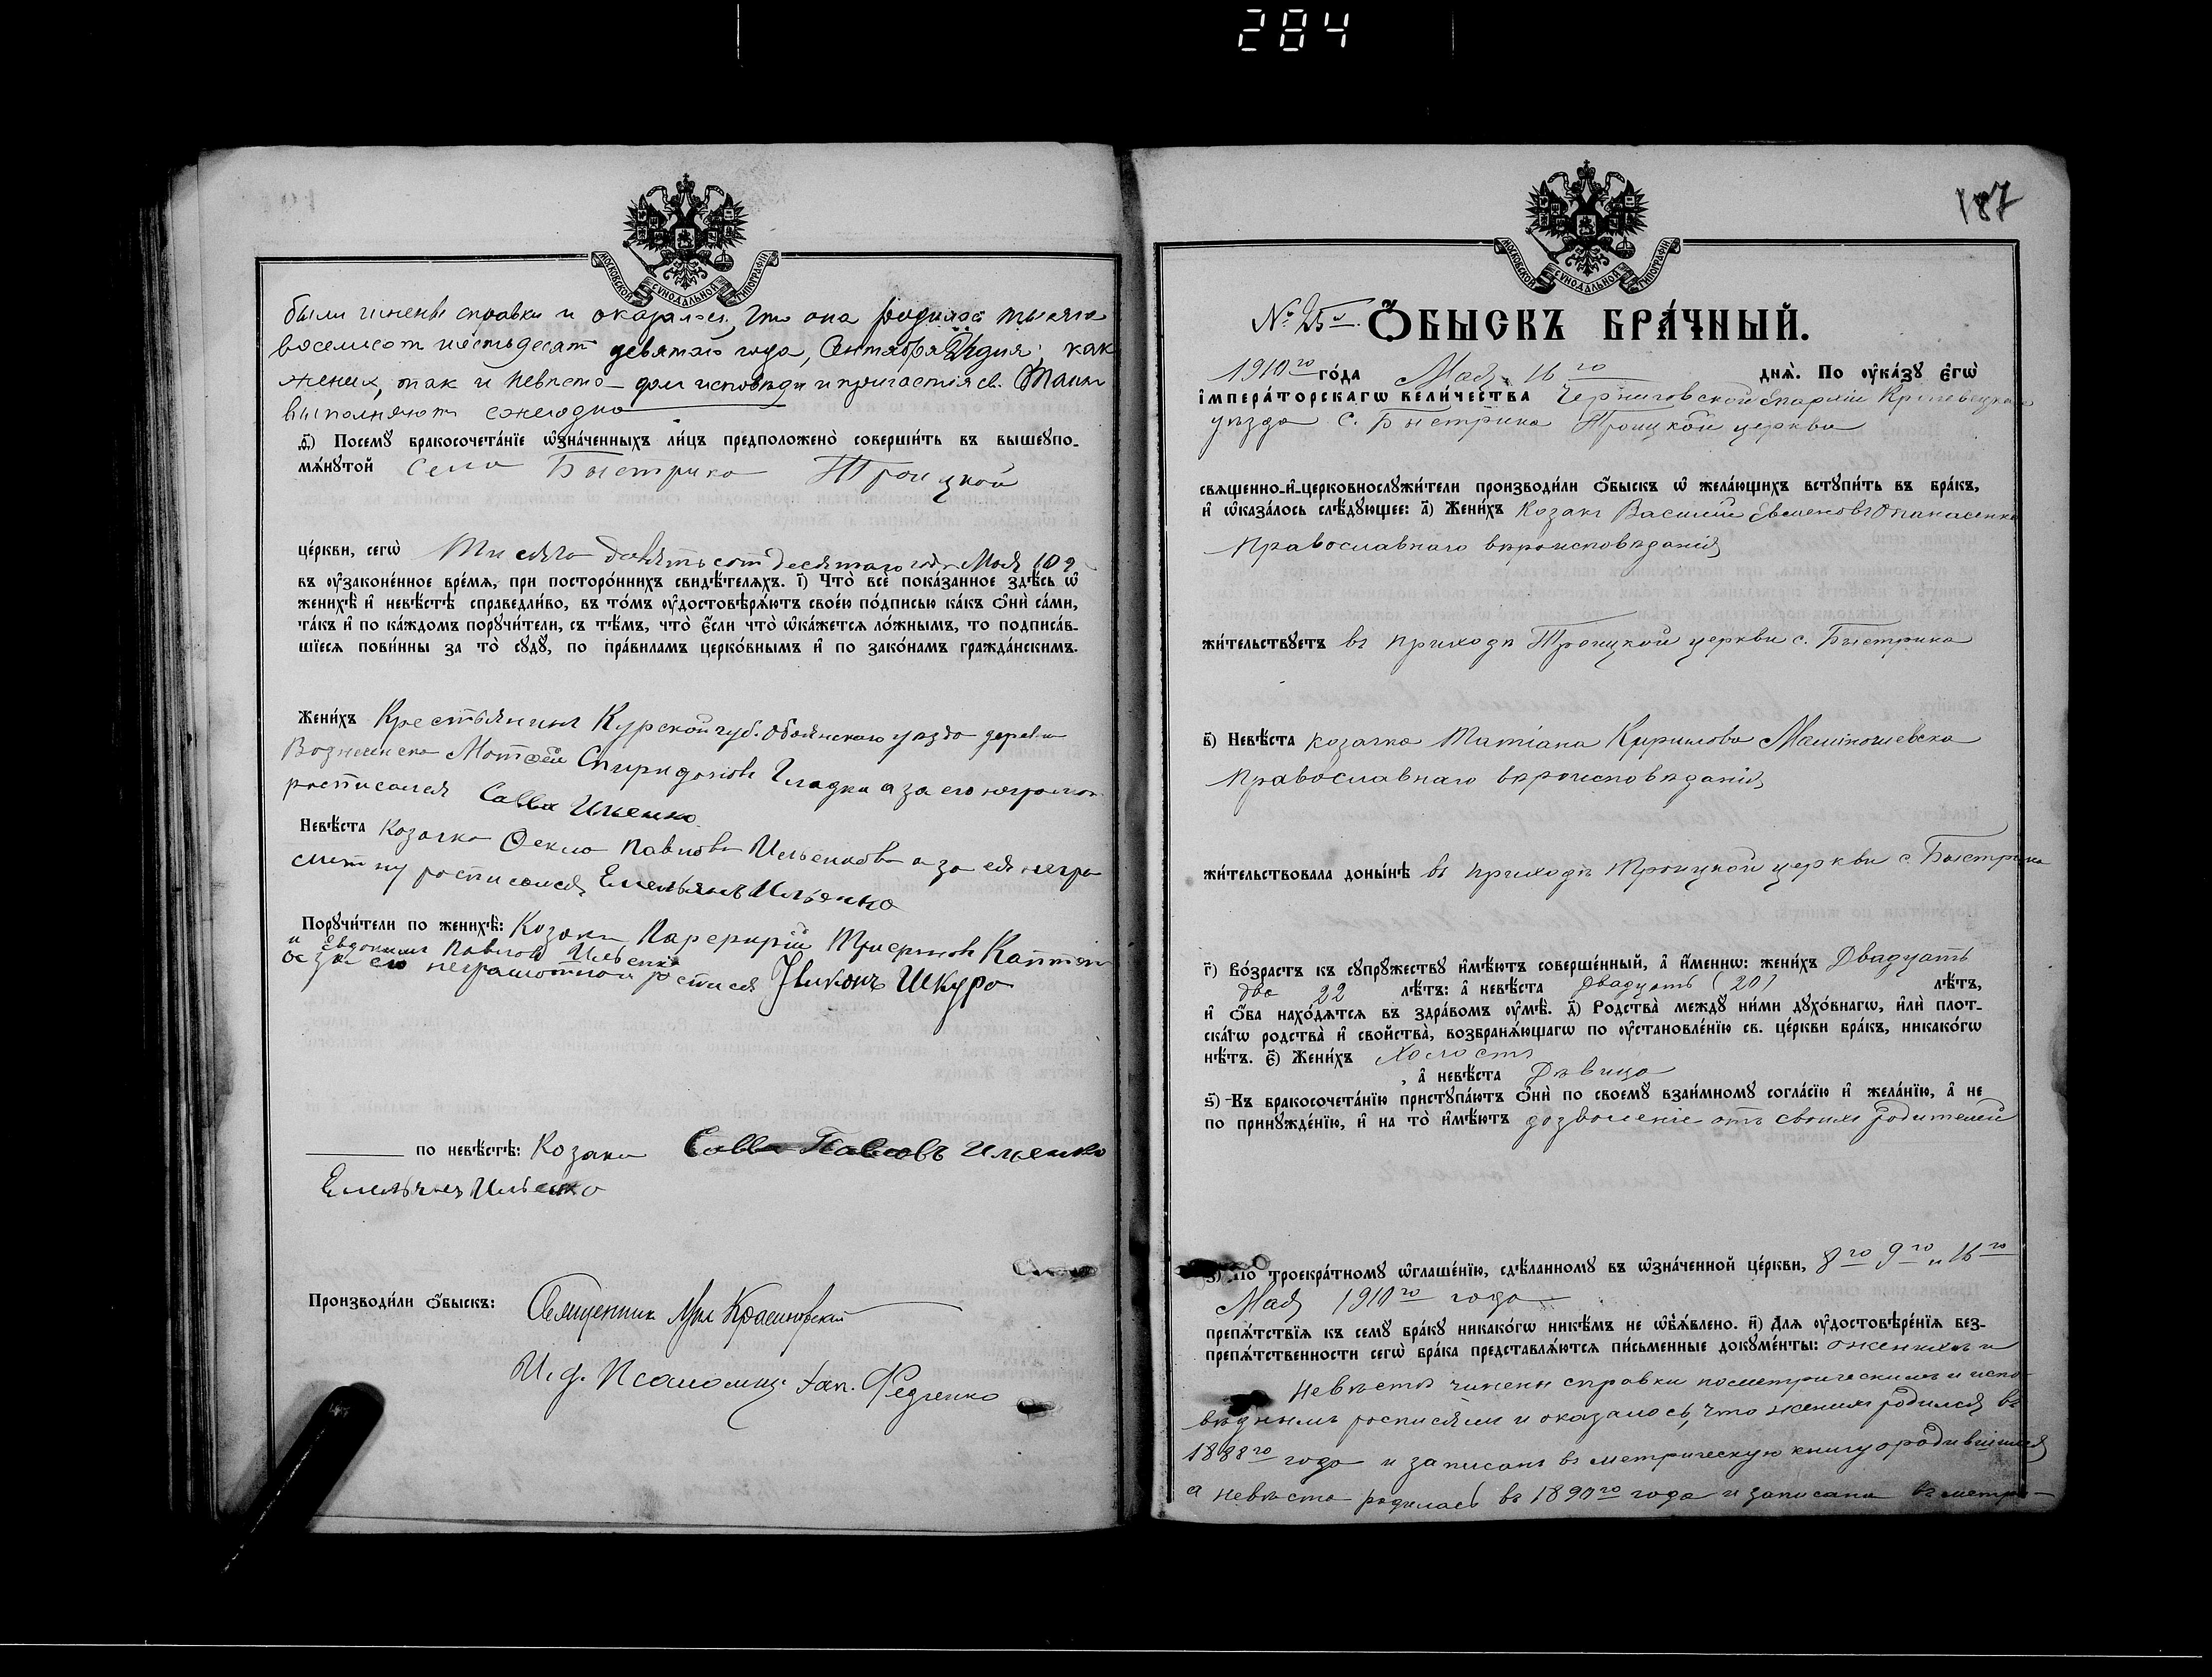 284
МОСКОВСКОЙ СѴНОДАЛЬНОЙ ТИПОГРАФІИ
были чинены справки и оказалось, что она родилась тысяча
восемьсот шестьдесят девятаго года, Сентября дня; как
жених, так и невеста – долг исповеди и причастія св. Таин
выполняют ежегодно
Посемꙋ бракосочета́нїе ѡ҆зна́ченныхъ ли́цъ предположено̀ соверши́ть въ вышеꙋпо-
мѧ́нꙋтой села Быстрика Троицкой
це́ркви, сегѡ̀ Тысяча девятьсот десятаго года Мая 10
въ ᲂу҆зако́ненное вре́мѧ, при посторо́ннихъ свидѣ́телѧхъ. і҃) Что̀ всѐ пока́занное здѣ́сь ѡ҆
женихѣ̀ и҆ невѣ́стѣ справедли́во, въ то́мъ ᲂу҆достовѣрѧ́ютъ свое́ю по́дписью ка́къ ѻ҆нѝ са́ми,
та́къ и҆ по ка́ждомъ порꙋчи́тели, съ тѣ́мъ, что̀ є҆́сли что̀ ѡ҆ка́жетсѧ ло́жнымъ, то подписа́в-
шїесѧ пови́нны за то̀ сꙋдꙋ̀, по пра́виламъ церко́внымъ и҆ по зако́намъ гражда́нскимъ.
Жени́хъ Крестьянин Курской губ. Обоянскаго уезда деревни
Матфей Спиридонов Гладки а за его неграмот
росписался Савва Ильенко
Невѣ́ста Козачка Фекла Павлова Ильенкова а за ея негра
мотну росписался Емельянъ Ильенко
Порꙋчи́тели по женихѣ̀: Козаки Парфирій
и Евдоким Павлов Ильенко
а за его неграмотнаго Никонъ Шкура
по невѣ́стѣ: Козаки Савва Павловъ Ильенко
Емельян Ильенко
Производи́ли ѻ҆́быскъ: Священник
И. д. Псаломщ. Федченко
187
МОСКОВСКОЙ СѴНОДАЛЬНОЙ ТИПОГРАФІИ
№ 25й. Ѻ҆́БЫСКЪ БРА́ЧНЫЙ.
1910го го́да Мая 16го днѧ̀. По ᲂу҆ка́зꙋ є҆гѡ̀
і҆мпера́торскагѡ вели́чества Черниговской Епархіи Кролевецкаго
уезда с. Быстрика Троицкой церкви
свѧщенно-и҆-церковнослꙋжи́тели производи́ли ѻ҆́быскъ ѡ҆ жела́ющихъ встꙋпи́ть въ бра́къ,
и҆ ѡ҆каза́лось слѣ́дꙋющее: а҃) Жени́хъ Козак Василий Евменовъ Опанасенко
Православнаго вероисповеданія
жи́тельствꙋетъ въ приходе Троицкой церкви с. Быстрика
в҃) Невѣ́ста козачка Татіана Кирилова
Православнаго вероисповеданія
жи́тельствовала доны́нѣ въ приходе Троицкой церкви с. Быстрика
г҃) Во́зрастъ къ сꙋпрꙋ́жествꙋ и҆мѣ́ютъ соверше́нный, а҆ и҆́менно: жени́хъ Двадцать
два 22 лѣ́тъ: а҆ невѣ́ста двадцать (20) лѣ́тъ,
и҆ ѻ҆́ба нахо́дѧтсѧ въ здра́вомъ ᲂу҆мѣ̀. д҃) Родства̀ междꙋ̀ ни́ми дꙋхо́внагѡ, и҆лѝ плот-
ска́гѡ родства̀ и҆ свойства̀, возбранѧ́ющагѡ по ᲂу҆становле́нїю св. це́ркви бра́къ, никако́гѡ
нѣ́тъ. є҃) Жени́хъ Холостъ
, а҆ невѣ́ста Девица
ѕ҃) Къ бракосочета́нїю пристꙋпа́ютъ ѻ҆нѝ по своемꙋ̀ взаи́мномꙋ согла́сїю и҆ жела́нїю, а҆ не
по принꙋжде́нїю, и҆ на то̀ и҆мѣ́ютъ дозволеніе отъ своихъ родителей
По троекра́тномꙋ ѡ҆глаше́нїю, сдѣ́ланномꙋ въ ѡ҆зна́ченной це́ркви, 8го 9го и 16го
Мая 1910го года
препѧ́тствїѧ къ семꙋ̀ бра́кꙋ никако́гѡ никѣ́мъ не ѡ҆б̾ѧ́влено. и҃) Длѧ ᲂу҆достовѣре́нїѧ без-
препѧ́тственности сегѡ̀ бра́ка представлѧ́ютсѧ пи́сьменные докꙋме́нты: о женихе и
невесте чинены справки по метрическим и испо-
веднымъ росписям и оказалось, что жених родился въ
1888го года и записан въ метрическую книгу о родившихся
а невеста родилась въ 1890го года и записана въ метри-